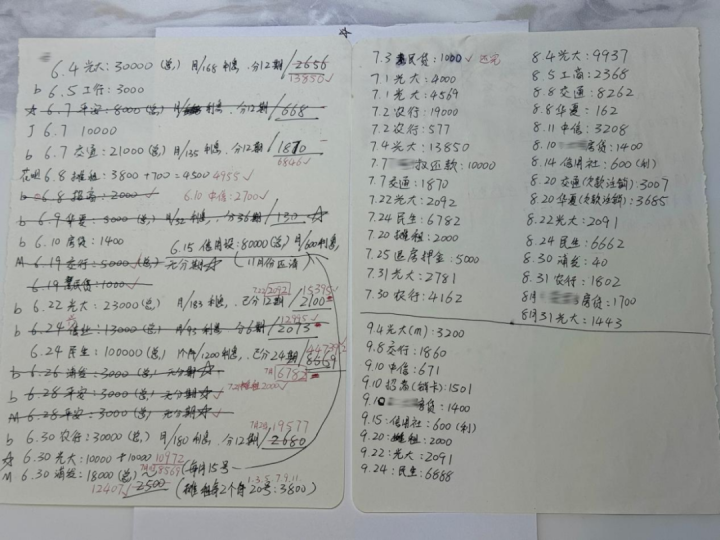 6.4 光大: 30000 (总) 月/168利息, 分12期/2656
13850✓
b 6.5 工行: 3000
6.7 平安: 8000 (总) 月/ 利息, 分12期/668
J 6.7 10000
b 6.7 交通: 21000 (总) 月/135利息, 分12期/1870
6846✓
6.8 摊租: 3800+700=4500 4955✓
b 6.8 招商: 2000✓ 6.10 中信: 2700✓
b 6.9 华夏: 5000 (总) 月/32利息, 分36期/150
b 6.10 房贷: 1400 6.15 信用社: 80000 (总) 月/600利息
M 6.19 交行: 5000 (总) 无分期 (11月份还清)
6.19 民贷: 1000✓
7.22/2092 15395✓
b 6.22 光大: 23000 (总) 月/183利息, 已分12期/2100
12995✓
b 6.24 13000 (总) 月/95利息 分6期/2073
6.24 民生: 100000 (总) 月/1200利息, 已分24期/8669
b 6.26 浦发: 3000 (总) 无分期 7月 6782
b 6.28 平安: 3000 (总) 无分期 7.20摊租2000✓
M 6.28 平安: 3000 (总) 无分期
19577
b 6.30 农行: 30000 (总) 月/180利息, 分12期/2680
6.30 光大: 10000+10000 10972
M 6.30 浦发: 18000 (总) 8569 (每月15号
12407✓ 2500 (摊租每2个月20号: 3800)
1.3.5.7.9.11
7.3 民贷: 1000✓ 还完
7.1 光大: 4000
7.1 光大: 4569
7.2 农行: 19000
7.2 农行: 577
7.4 光大: 13850
7.7 权还款: 10000
7.7 交通: 1870
7.22 光大: 2092
7.24 民生: 6782
7.20 摊租: 2000
7.25 还房押金: 5000
7.31 光大: 2781
7.30 农行: 4162
8.4 光大: 9937
8.5 工商: 2368
8.8 交通: 8262
8.8 华夏: 162
8.11 中信: 3208
8.10 房贷: 1400
8.14 信用社: 600(利)
8.20 交通(欠款注销): 3007
8.20 华夏(欠款注销): 3685
8.22 光大: 2091
8.24 民生: 6662
8.30 浦发: 40
8.31 农行: 1802
8月 房贷: 1700
8月31 光大: 1443
9.4 光大(m): 3200
9.8 交行: 1860
9.10 中信: 671
9.10 招商(销卡): 1501
9.10 房贷: 1400
9.15: 信用社: 600 (利)
9.20: 摊租: 2000
9.22: 光大: 2091
9.24: 民生: 6888